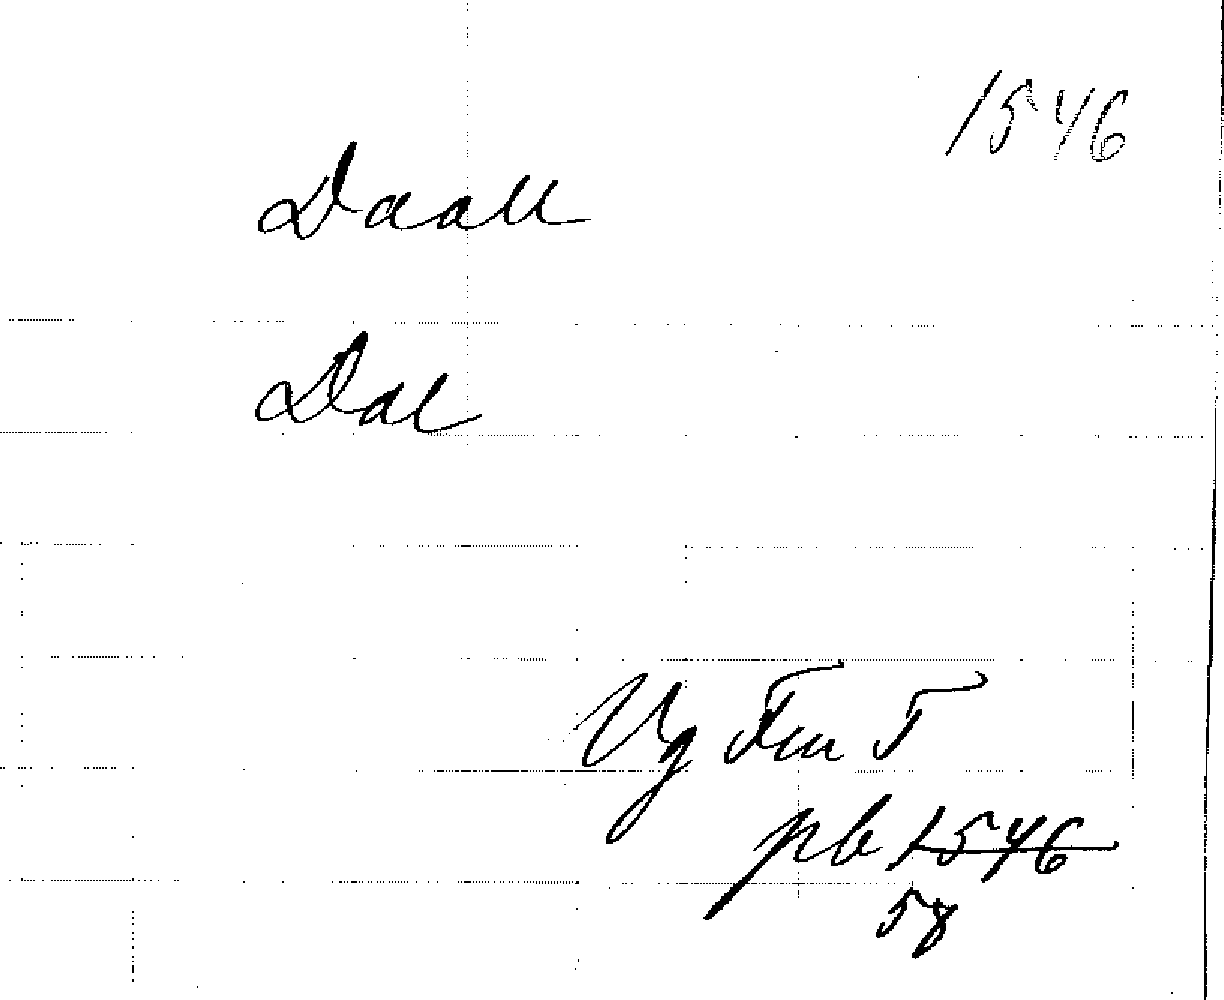 1546
Daall
Dal
Vg Fru T
pb 1546
58